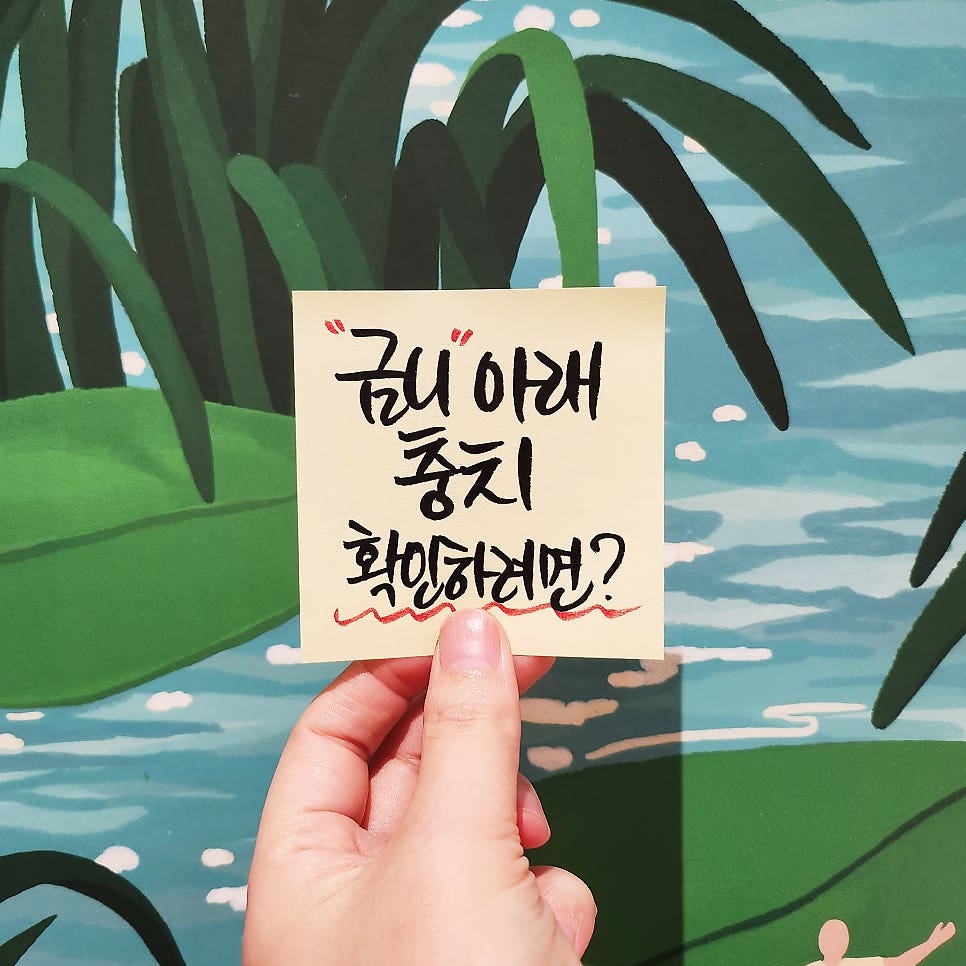 "금니" 아래
충치
확인하려면?